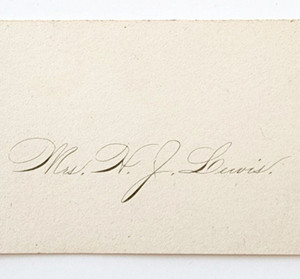 Mrs. H. J. Lewis.